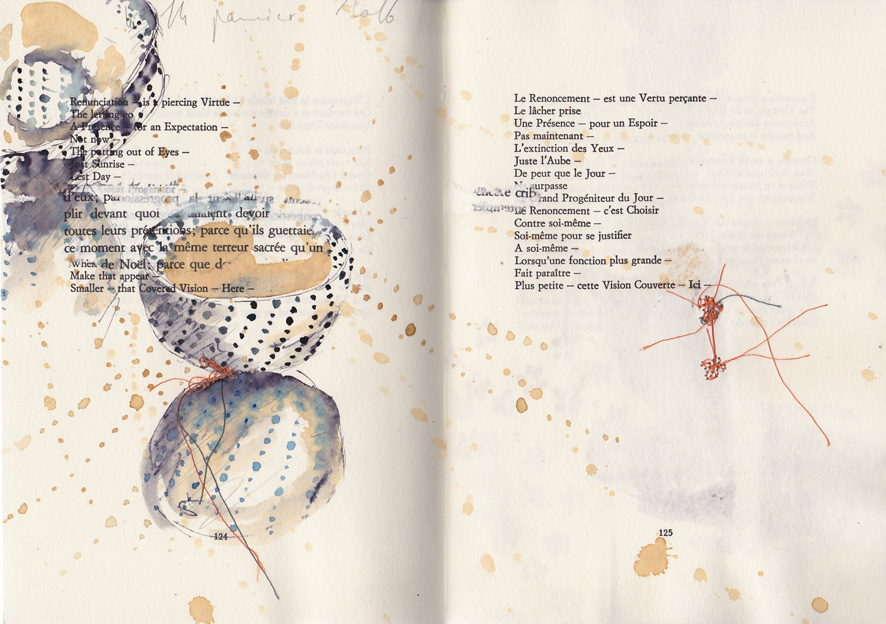 Renunciation – is a piercing Virtue –
The letting go
A Presence – for an Expectation –
Not now –
The putting out of Eyes –
Just Sunrise –
Lest Day –
Great Progenitor –
d'eux; par
plir devant quoi devoir
toutes leurs prétentions; parce qu'ils guettaient
ce moment avec la même terreur sacrée qu'un
When de Noël; parce que d
Make that appear
Smaller – that Covered Vision – Here –
124
Le Renoncement – est une Vertu perçante –
Le lâcher prise
Une Présence – pour un Espoir –
Pas maintenant –
L'extinction des Yeux –
Juste l'Aube –
De peur que le Jour –
surpasse
rand Progéniteur du Jour –
Le Renoncement – c'est Choisir
Contre soi-même –
Soi-même pour se justifier
A soi-même –
Lorsqu'une fonction plus grande –
Fait paraître –
Plus petite – cette Vision Couverte – Ici –
125